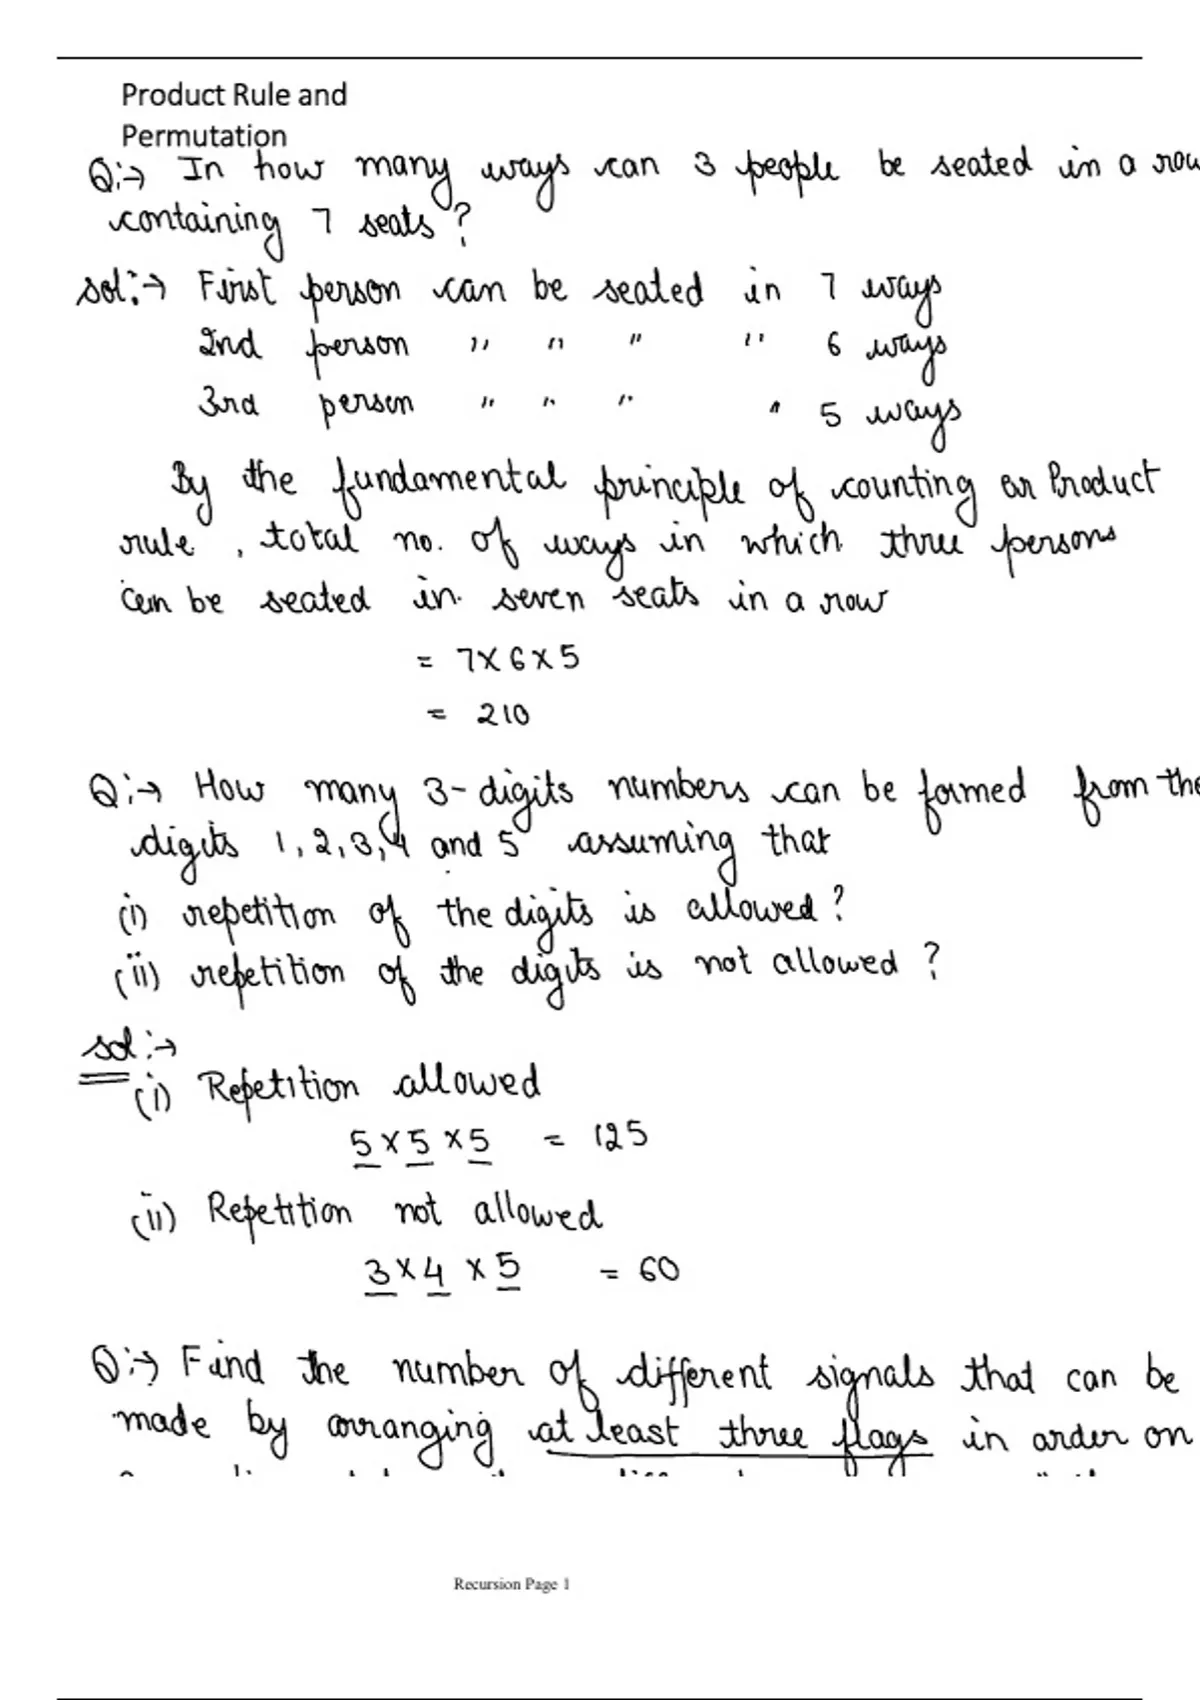 Product Rule and
Permutation
Q:→ In how many ways can 3 people be seated in a row
containing 7 seats?
Sol:→ First person can be seated in 7 ways
2nd person " " " " 6 ways
3rd person " " " " 5 ways
By the fundamental principle of counting or Product
rule, total no. of ways in which three persons
can be seated in seven seats in a row
= 7×6×5
= 210
Q:→ How many 3-digits numbers can be formed from the
digits 1,2,3,4 and 5 assuming that
(i) repetition of the digits is allowed?
(ii) repetition of the digits is not allowed?
Sol:→
(i) Repetition allowed
5×5×5 = 125
(ii) Repetition not allowed
3×4×5 = 60
Q:→ Find the number of different signals that can be
made by arranging at least three flags in order on
Recursion Page 1